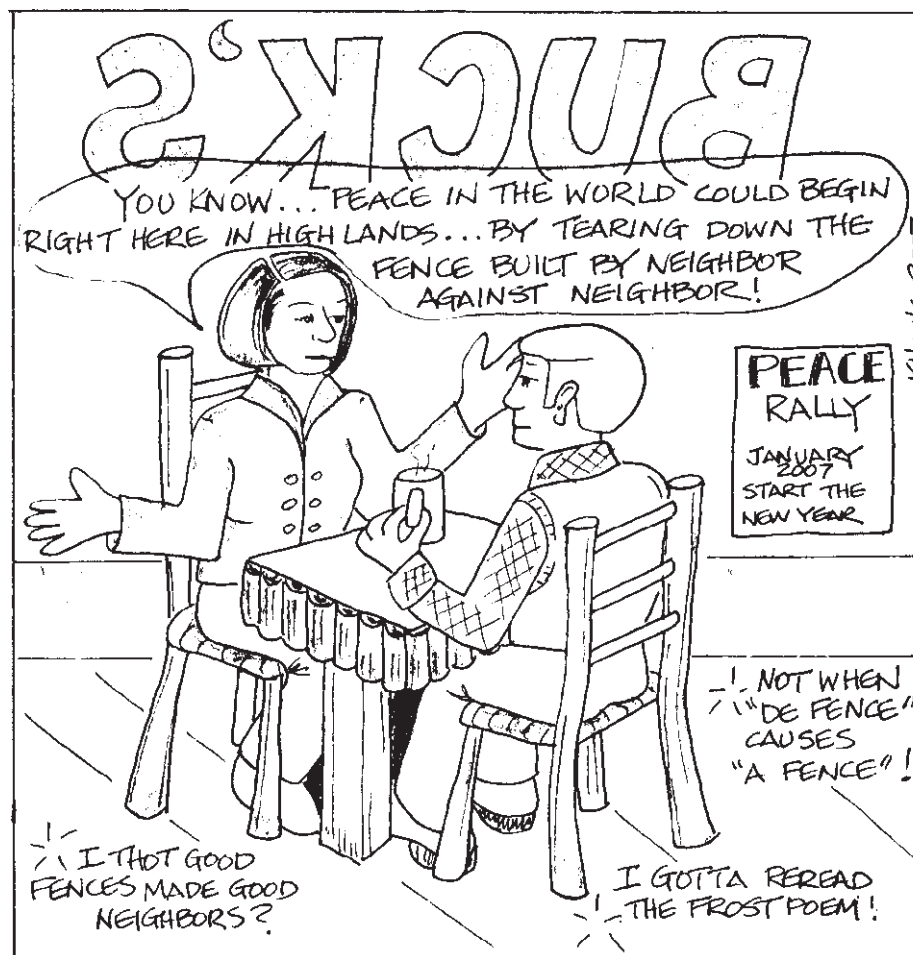 BUCK'S
YOU KNOW... PEACE IN THE WORLD COULD BEGIN
RIGHT HERE IN HIGHLANDS... BY TEARING DOWN THE
FENCE BUILT BY NEIGHBOR
AGAINST NEIGHBOR!
PEACE
RALLY
JANUARY
2007
START THE
NEW YEAR
NOT WHEN
"DE FENCE"
CAUSES
"A FENCE"!
I THOT GOOD
FENCES MADE GOOD
NEIGHBORS?
I GOTTA REREAD
THE FROST POEM!